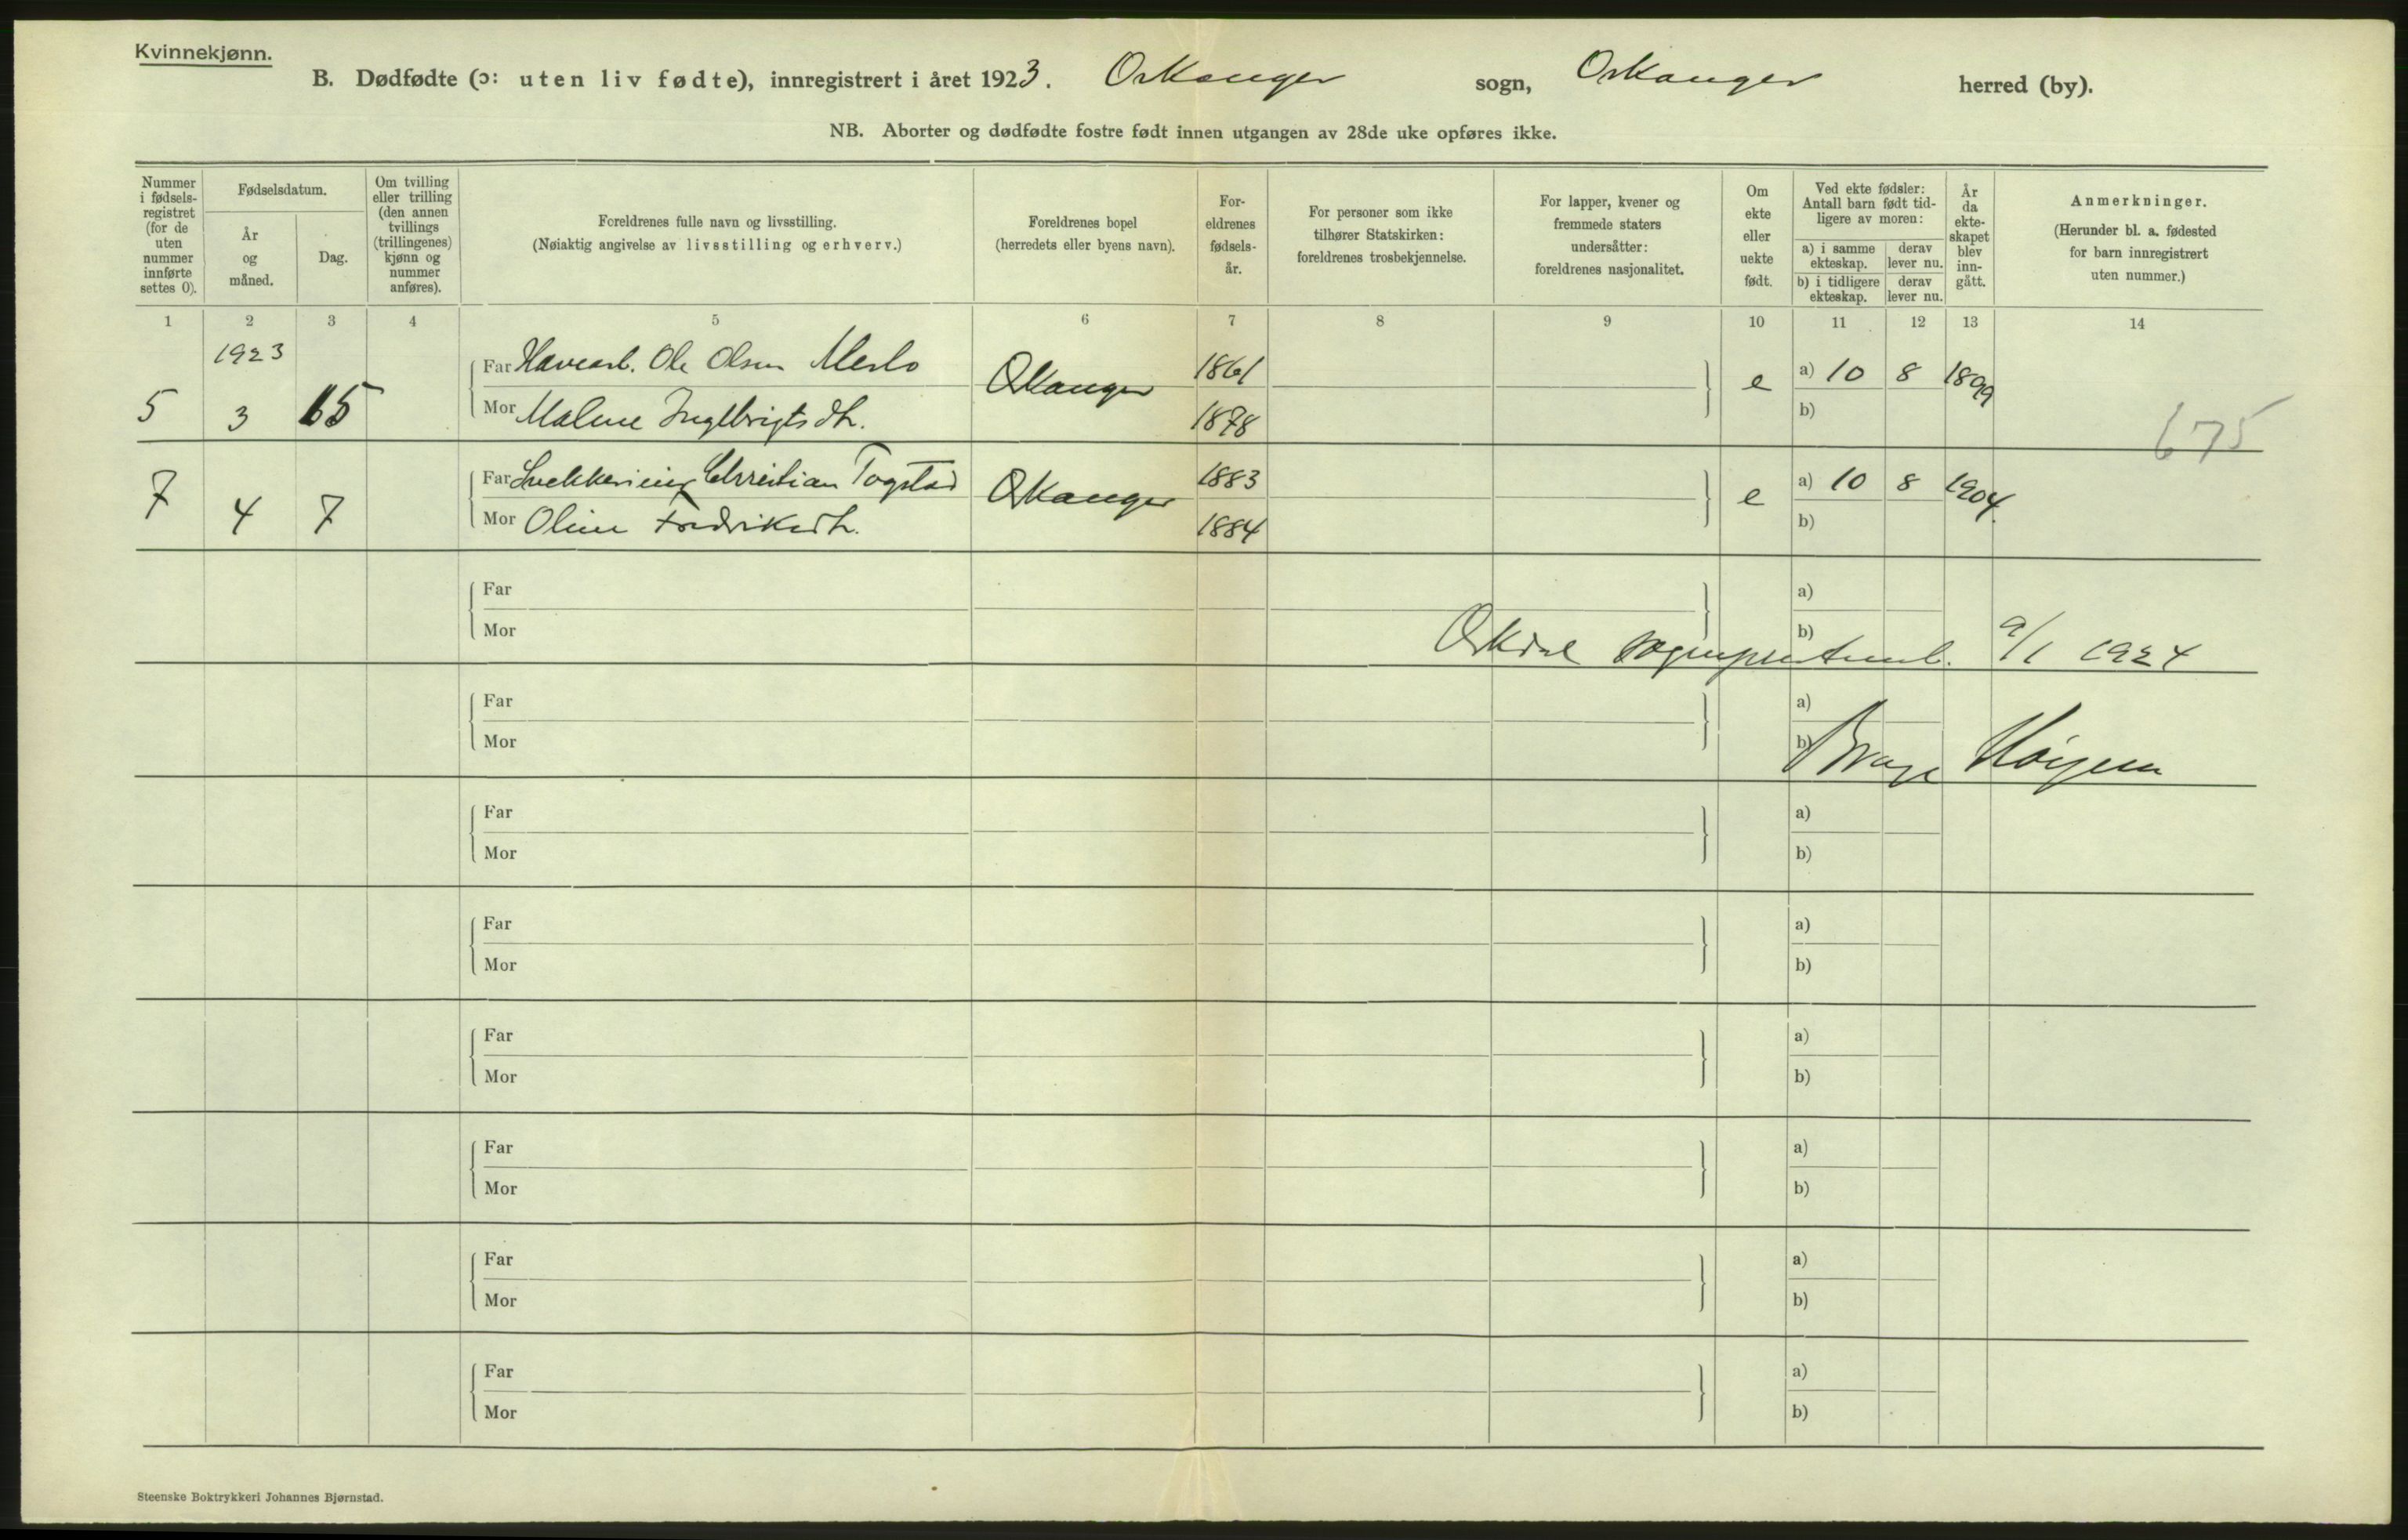 Kvinnekjønn.
B. Dødfødte (ɔ: uten liv fødte), innregistrert i året 1923. Orkanger sogn, Orkanger herred (by).
NB. Aborter og dødfødte fostre født innen utgangen av 28de uke opføres ikke.
Nummer i fødsels-registret (for de uten nummer innførte settes 0).
Fødselsdatum.
År og måned.
Dag.
Om tvilling eller trilling (den annen tvillings (trillingenes) kjønn og nummer anføres).
Foreldrenes fulle navn og livsstilling.
(Nøiaktig angivelse av livsstilling og erhverv.)
Foreldrenes bopel
(herredets eller byens navn).
For-eldrenes fødsels-år.
For personer som ikke tilhører Statskirken: foreldrenes trosbekjennelse.
For lapper, kvener og fremmede staters undersåtter: foreldrenes nasjonalitet.
Om ekte eller uekte født.
Ved ekte fødsler: Antall barn født tid-ligere av moren:
a) i samme ekteskap.
derav lever nu.
b) i tidligere ekteskap.
derav lever nu.
År da ekte-skapet blev inn-gått.
Anmerkninger.
(Herunder bl. a. fødested for barn innregistrert uten nummer.)
1 2 3 4 5 6 7 8 9 10 11 12 13 14
1923
Far Havearb. Ole Olsen Merlo 1861 a) 10 8 1899
5 3 15 Orkanger e
Mor Malene Inglbrigtsdtr. 1878 b)
675
Far Christian Togstad 1883 a) 10 8 1904
7 4 7 Orkanger e
Mor Oline Fredriksdtr. 1884 b)
Far a)
Mor b)
Orkdal sogneprestemb. 9/1 1924
Far a)
Mor b)
Far a)
Mor b)
Far a)
Mor b)
Far a)
Mor b)
Far a)
Mor b)
Far a)
Mor b)
Far a)
Mor b)
Steenske Boktrykkeri Johannes Bjørnstad.